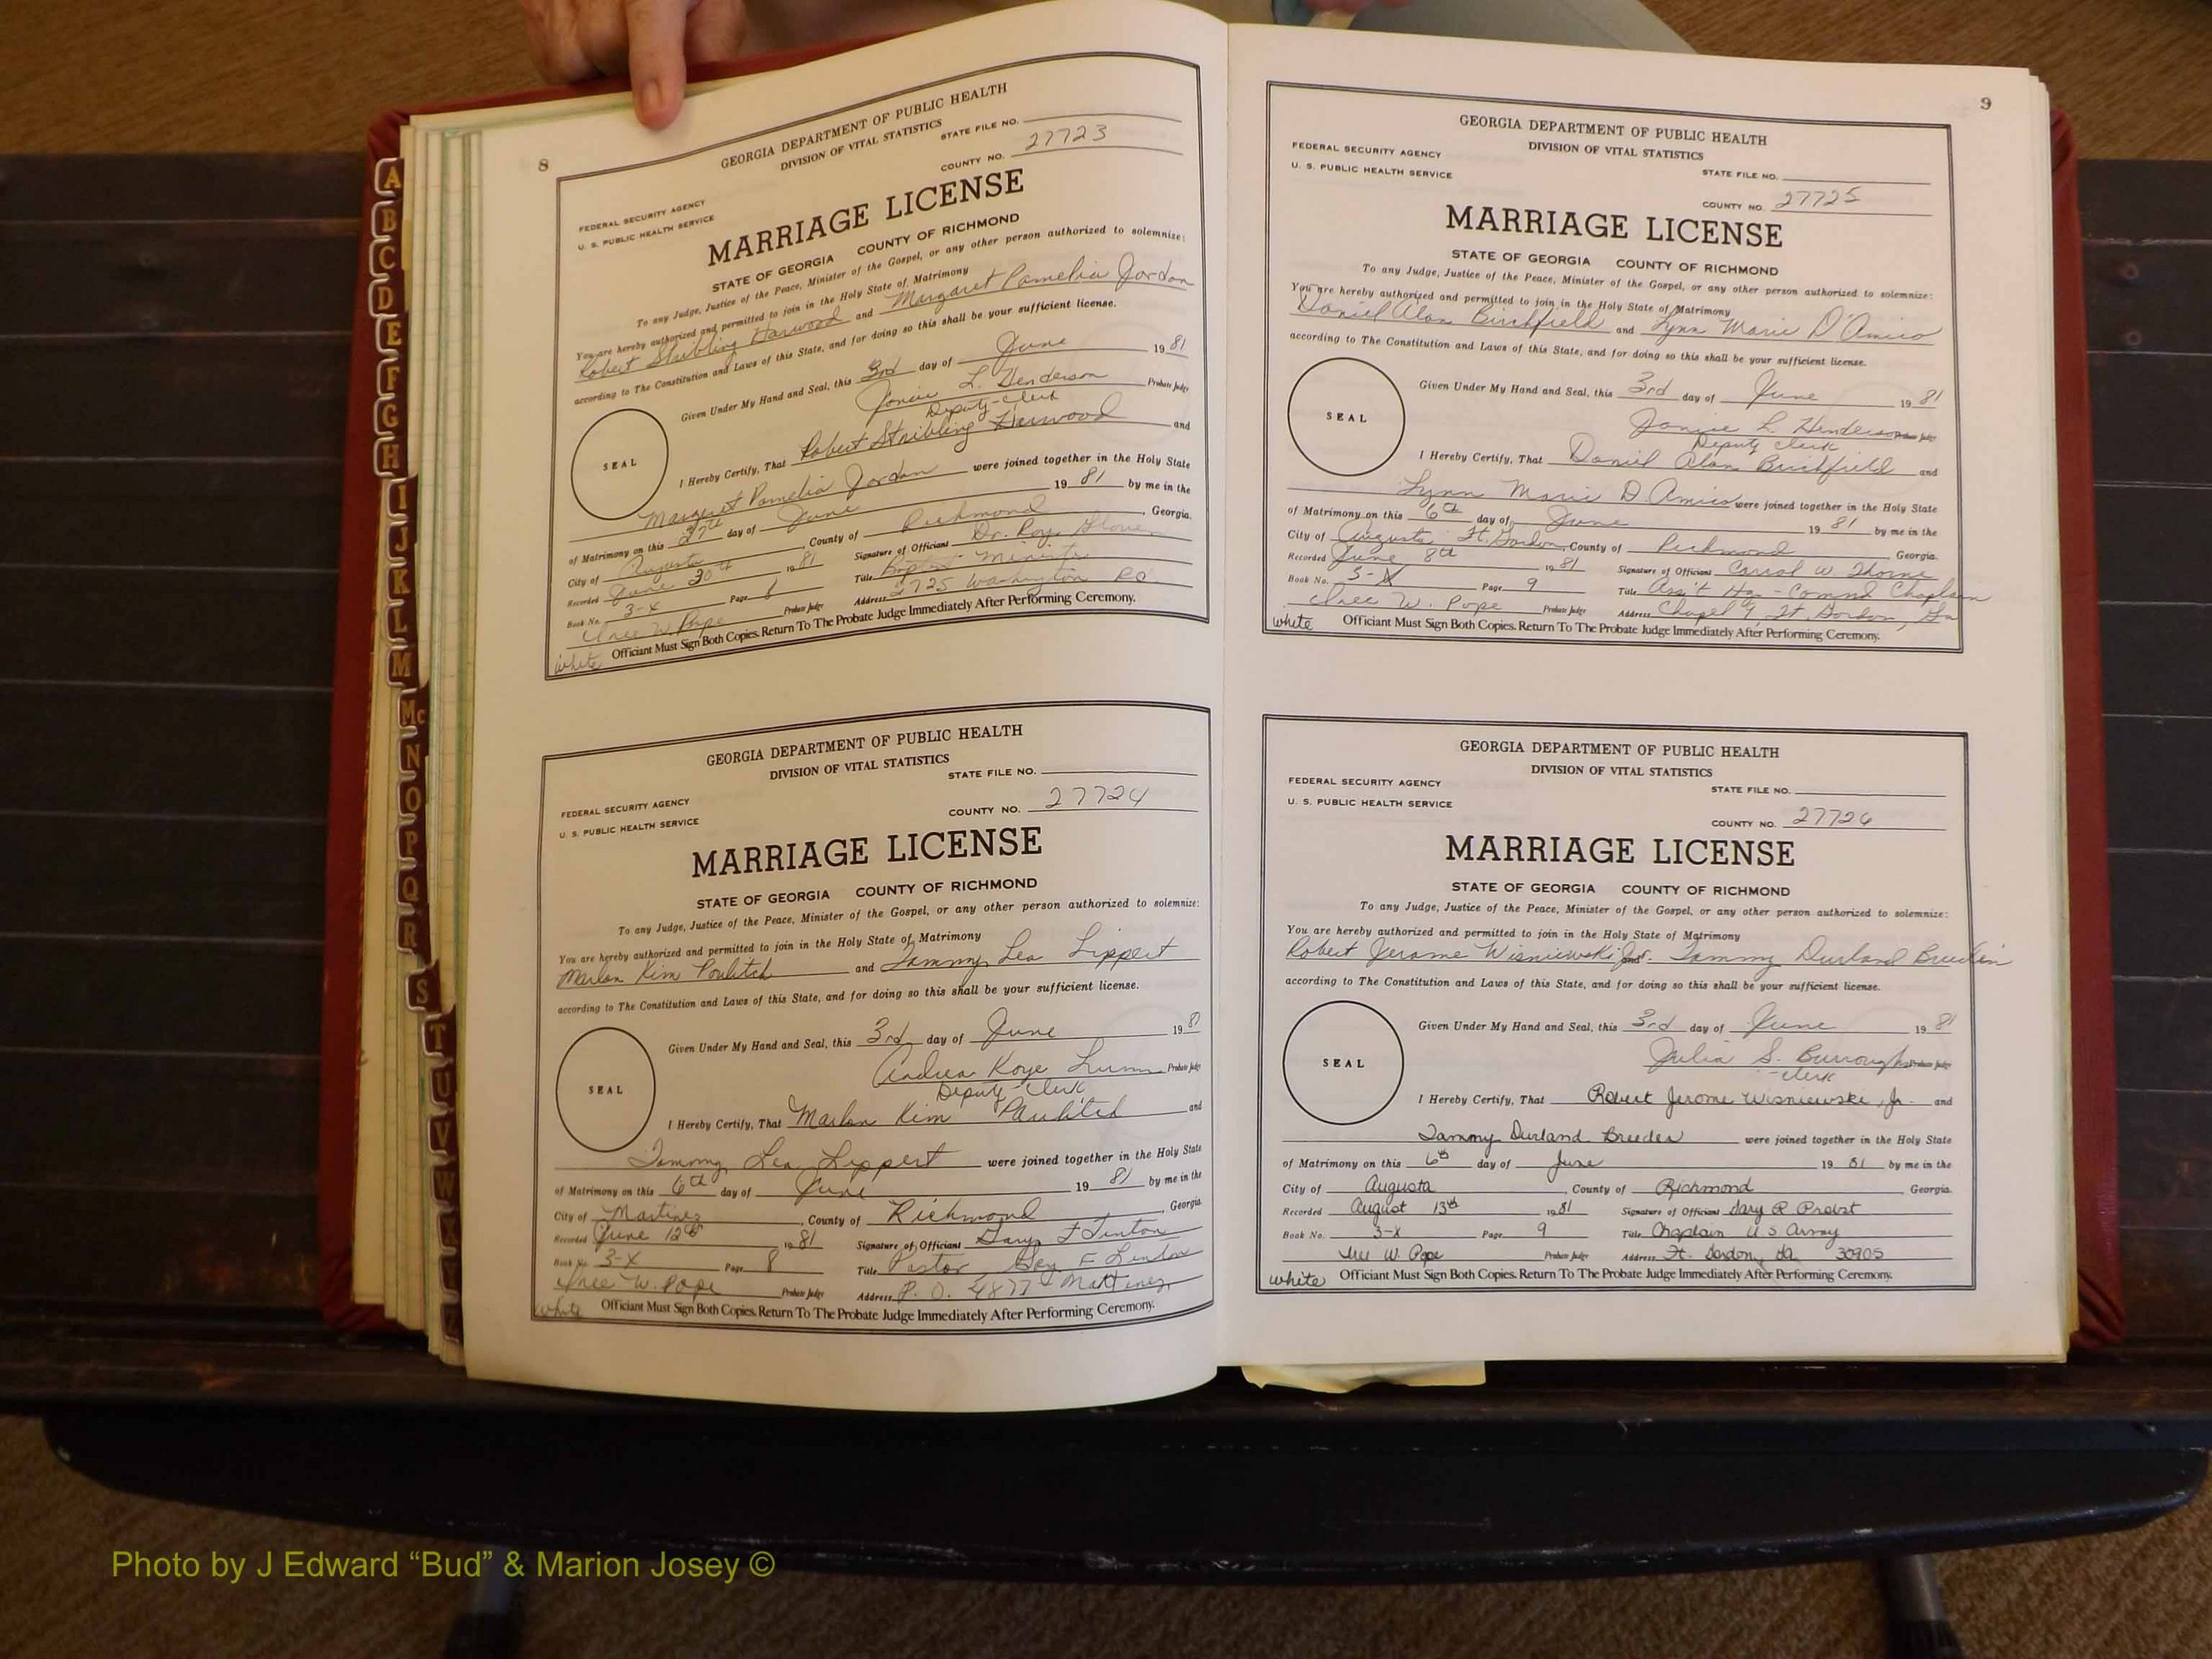 A
B
C
D
E
F
G
H
I
J
K
L
M
Mc
N
O
P
Q
R
S
T
U
V
W
8
GEORGIA DEPARTMENT OF PUBLIC HEALTH
DIVISION OF VITAL STATISTICS
STATE FILE NO.
COUNTY NO. 27723
FEDERAL SECURITY AGENCY
U. S. PUBLIC HEALTH SERVICE
MARRIAGE LICENSE
STATE OF GEORGIA COUNTY OF RICHMOND
To any Judge, Justice of the Peace, Minister of the Gospel, or any other person authorized to solemnize:
You are hereby authorized and permitted to join in the Holy State of Matrimony
Robert Stribling Harwood and Margaret Pamelia Jordan
according to The Constitution and Laws of this State, and for doing so this shall be your sufficient license.
Given Under My Hand and Seal, this 3rd day of June 19 81
L. Henderson Probate Judge
Deputy-Clerk
SEAL
I Hereby Certify, That Robert Stribling Harwood and
Margaret Pamelia Jordan were joined together in the Holy State
of Matrimony on this 27th day of June 19 81 by me in the
City of Augusta, County of Richmond, Georgia.
Recorded June 30th 19 81 Signature of Officiant Dr. Roy
Book No. 3-X Page Title Baptist Minister
W. Pope Probate Judge Address 2725 Washington Rd
white Officiant Must Sign Both Copies. Return To The Probate Judge Immediately After Performing Ceremony.
GEORGIA DEPARTMENT OF PUBLIC HEALTH
DIVISION OF VITAL STATISTICS
STATE FILE NO.
FEDERAL SECURITY AGENCY
COUNTY NO. 27724
U. S. PUBLIC HEALTH SERVICE
MARRIAGE LICENSE
STATE OF GEORGIA COUNTY OF RICHMOND
To any Judge, Justice of the Peace, Minister of the Gospel, or any other person authorized to solemnize:
You are hereby authorized and permitted to join in the Holy State of Matrimony
Marlon Kim and Tammy Lea Lippert
according to The Constitution and Laws of this State, and for doing so this shall be your sufficient license.
Given Under My Hand and Seal, this 3rd day of June 19 81
Andrea Kaye Probate Judge
Deputy-Clerk
SEAL
I Hereby Certify, That Marlon Kim and
Tammy Lea Lippert were joined together in the Holy State
of Matrimony on this 6th day of June 19 81 by me in the
City of Martinez, County of Richmond, Georgia
Recorded June 12th 19 81 Signature of Officiant F Linton
Book No. 3-X Page 8 Title Pastor F Linton
W. Pope Probate Judge Address P. O. 4877 Martinez
white Officiant Must Sign Both Copies. Return To The Probate Judge Immediately After Performing Ceremony.
9
GEORGIA DEPARTMENT OF PUBLIC HEALTH
FEDERAL SECURITY AGENCY
DIVISION OF VITAL STATISTICS
U. S. PUBLIC HEALTH SERVICE
STATE FILE NO.
COUNTY NO. 27725
MARRIAGE LICENSE
STATE OF GEORGIA COUNTY OF RICHMOND
To any Judge, Justice of the Peace, Minister of the Gospel, or any other person authorized to solemnize:
You are hereby authorized and permitted to join in the Holy State of Matrimony
Daniel Alan Birchfield and Lynn Marie D'Amico
according to The Constitution and Laws of this State, and for doing so this shall be your sufficient license.
Given Under My Hand and Seal, this 3rd day of June 19 81
L. Henderson Probate Judge
Deputy Clerk
SEAL
I Hereby Certify, That Daniel Alan Birchfield and
Lynn Marie D Amico were joined together in the Holy State
of Matrimony on this 6th day of June 19 81 by me in the
City of Augusta Ft. Gordon, County of Richmond Georgia.
Recorded June 8th 19 81 Signature of Officiant Carrol W. Thorne
Book No. 3-X Page 9 Title Ass't Hq - Comnd Chaplain
W. Pope Probate Judge Address Chapel 9, Ft. Gordon, Ga
white Officiant Must Sign Both Copies. Return To The Probate Judge Immediately After Performing Ceremony.
GEORGIA DEPARTMENT OF PUBLIC HEALTH
DIVISION OF VITAL STATISTICS
FEDERAL SECURITY AGENCY
STATE FILE NO.
U. S. PUBLIC HEALTH SERVICE
COUNTY NO. 27726
MARRIAGE LICENSE
STATE OF GEORGIA COUNTY OF RICHMOND
To any Judge, Justice of the Peace, Minister of the Gospel, or any other person authorized to solemnize:
You are hereby authorized and permitted to join in the Holy State of Matrimony
Robert Jerome Wisniewski Jr. and Tammy Durland Breeden
according to The Constitution and Laws of this State, and for doing so this shall be your sufficient license.
Given Under My Hand and Seal, this 3rd day of June 19 81
Julia S. Burroughs Probate Judge
-clerk
SEAL
I Hereby Certify, That Robert Jerome Wisniewski, Jr. and
Tammy Durland Breeden were joined together in the Holy State
of Matrimony on this 6th day of June 19 81 by me in the
City of Augusta, County of Richmond Georgia.
Recorded August 13th 1981 Signature of Officiant Gary R Probst
Book No. 3-X Page 9 Title Chaplain U S Army
W. Pope Probate Judge Address Ft. Gordon, Ga 30905
white Officiant Must Sign Both Copies. Return To The Probate Judge Immediately After Performing Ceremony.
Photo by J Edward “Bud” & Marion Josey ©